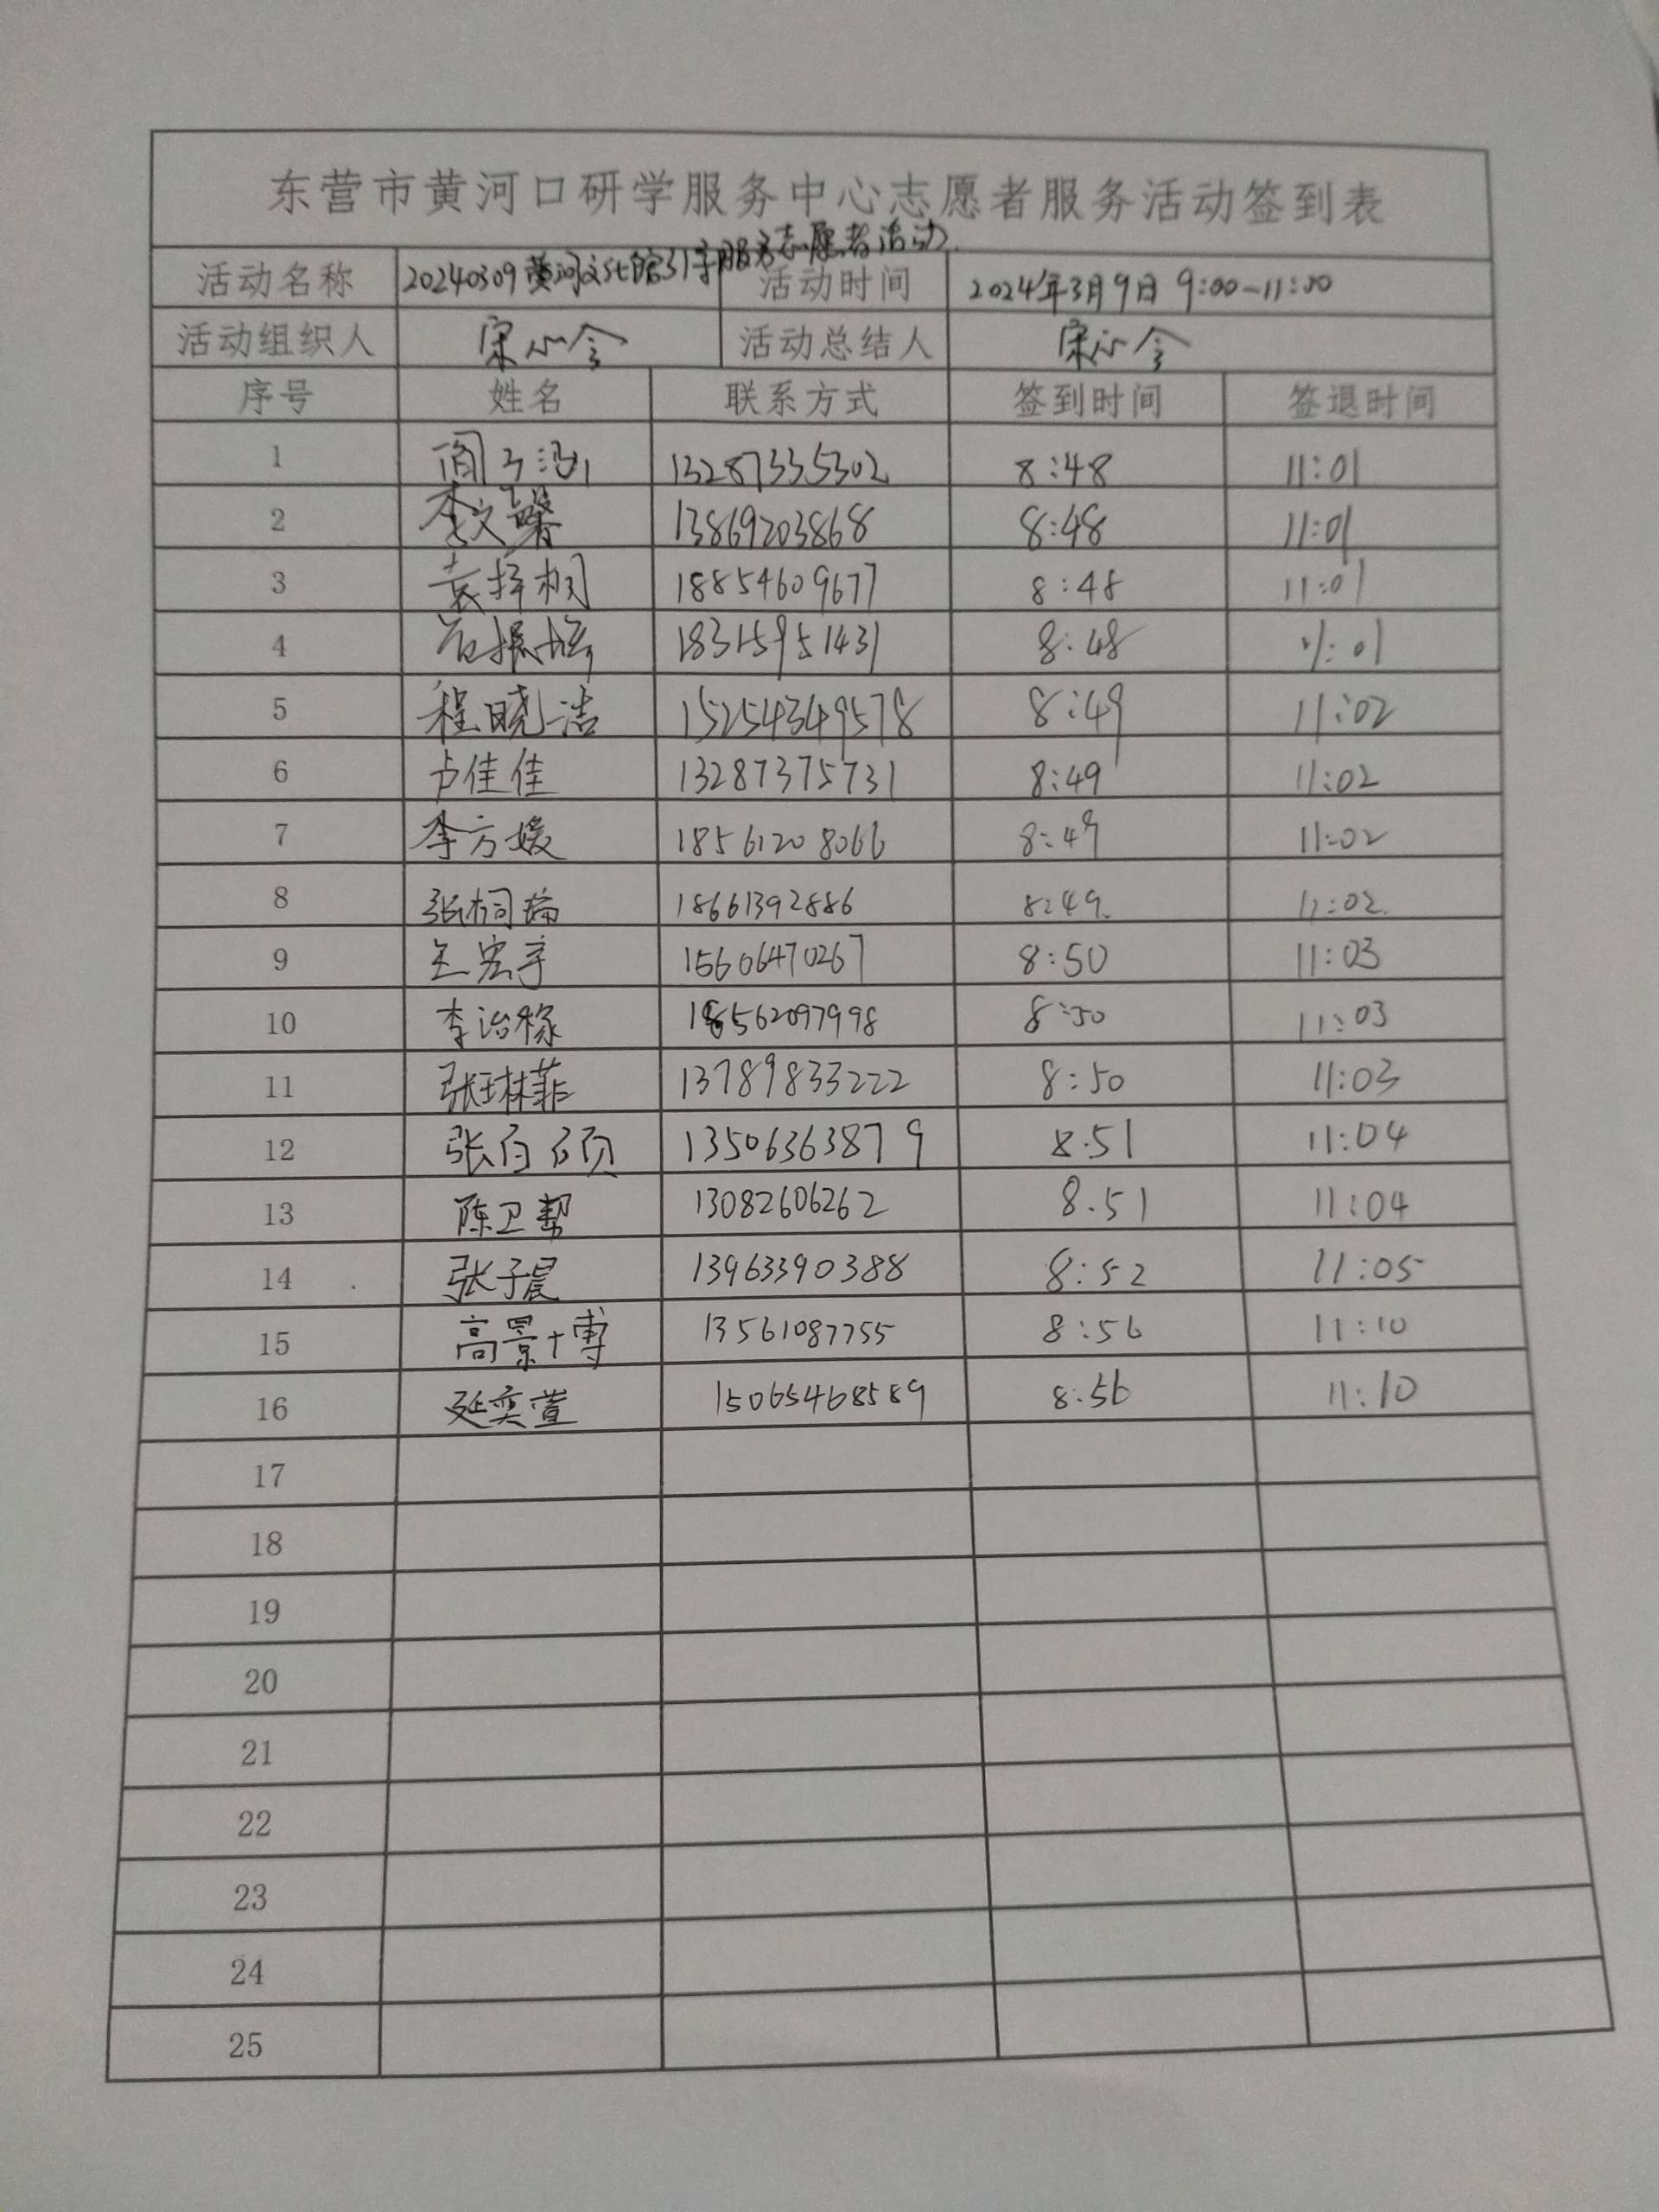 东营市黄河口研学服务中心志愿者服务活动签到表
活动名称 20240309黄河文化馆引导服务志愿者活动 活动时间 2024年3月9日 9:00-11:00
活动组织人 宋心令 活动总结人 宋心令
序号 姓名 联系方式 签到时间 签退时间
1 闫子涵 13287335302 8:48 11:01
2 李文馨 13869203868 8:48 11:01
3 袁择桐 18854609677 8:48 11:01
4 18315951431 8:48 11:01
5 程晓洁 15254349578 8:49 11:02
6 卢佳佳 13287375731 8:49 11:02
7 李方媛 18561208066 8:49 11:02
8 张桐瑞 18661392886 8:49 11:02
9 王宏宇 15606470267 8:50 11:03
10 李治稼 18562097998 8:50 11:03
11 张琳菲 13789833222 8:50 11:03
12 张百硕 13506363879 8.51 11:04
13 陈卫帮 13082606262 8.51 11:04
14 张子晨 13963390388 8:52 11:05
15 高景博 13561087755 8:56 11:10
16 延奕萱 15065468589 8:56 11:10
17
18
19
20
21
22
23
24
25